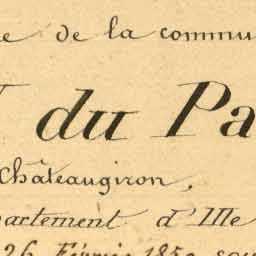 e de la commu
du Pa
Châteaugiron,
partement d'Ille
26 Février 185